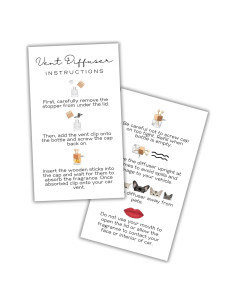 Vent Diffuser
INSTRUCTIONS
First, carefully remove the
stopper from under the lid.
Then, add the vent clip onto
the bottle and screw the cap
back on.
Insert the wooden sticks into
the cap and wait for them to
absorb the fragrance. Once
absorbed clip onto your car
vent
Be careful not to screw cap
on too tight. Refill when
bottle is empty.
the diffuser upright at
to avoid spills and
to your vehicle.
diffuser away from
pets
Do not use your mouth to
open the lid or allow the
fragrance to contact your
face or interior of car